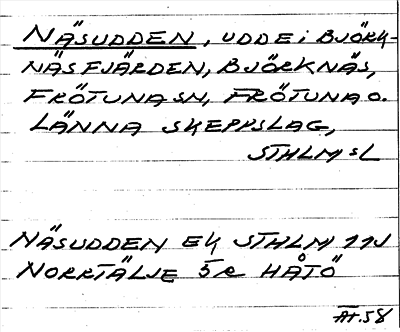 NÄSUDDEN, UDDE i BJÖRK-
NÄSFJÄRDEN, BJÖRKNÄS,
FRÖTUNA SN, FRÖTUNA O.
LÄNNA SKEPPSLAG,
STHLM SL
NÄSUDDEN EK STHLM 11J
NORRTÄLJE 5 R HÅTÖ
ÄH.58